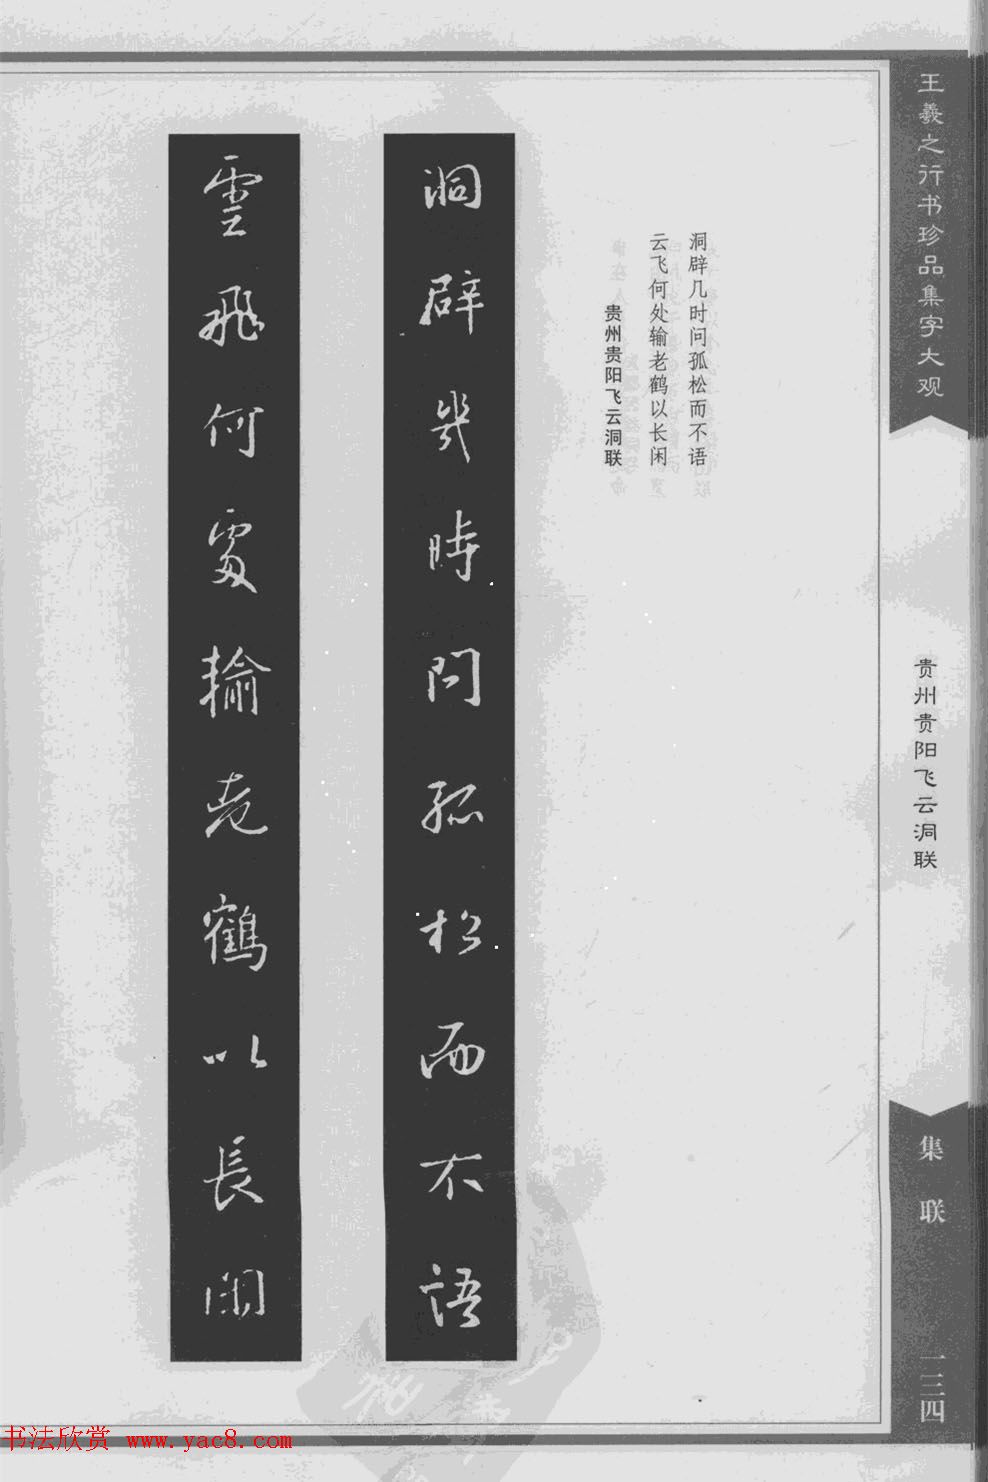 王羲之行书珍品集字大观
贵州贵阳飞云洞联
集联
一三四
洞辟几时问孤松而不语
云飞何处输老鹤以长闲
贵州贵阳飞云洞联
洞辟幾時問孤松而不語
雲飛何處輸老鶴以長閑
书法欣赏 www.yac8.com